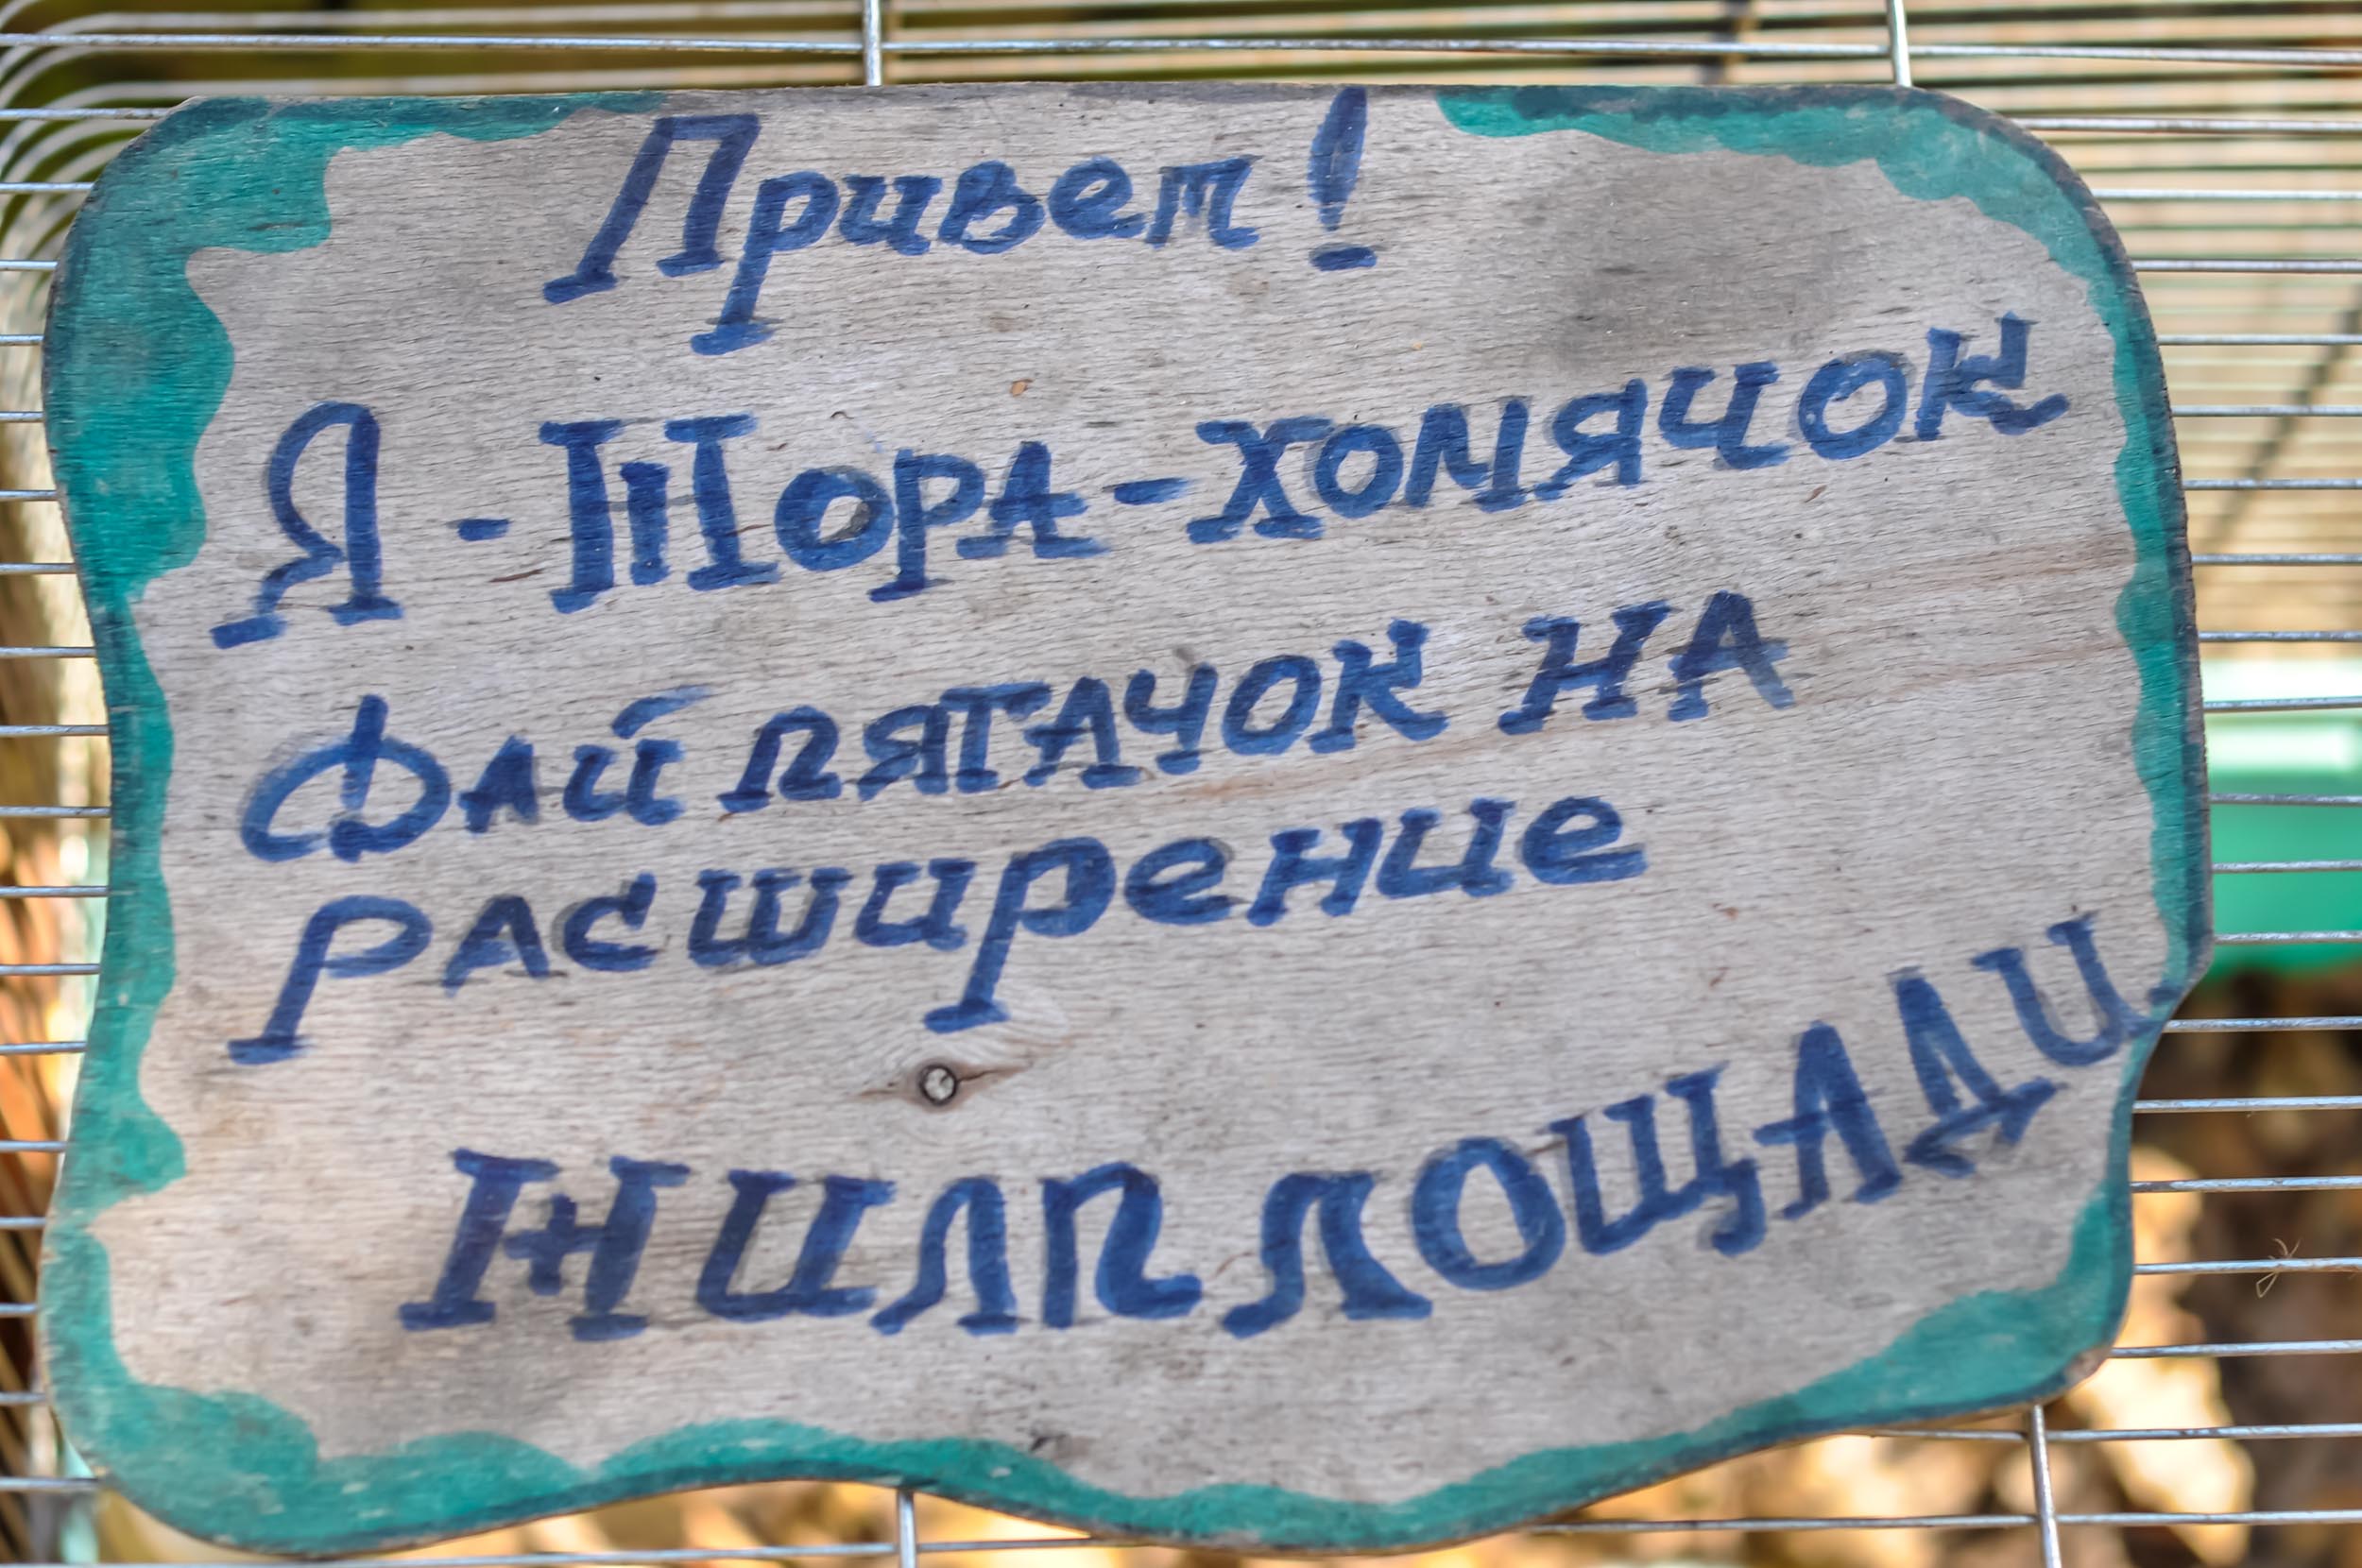 Привет!
Я - Тора - хомячок
Фай пятачок на
расширение
жилплощади